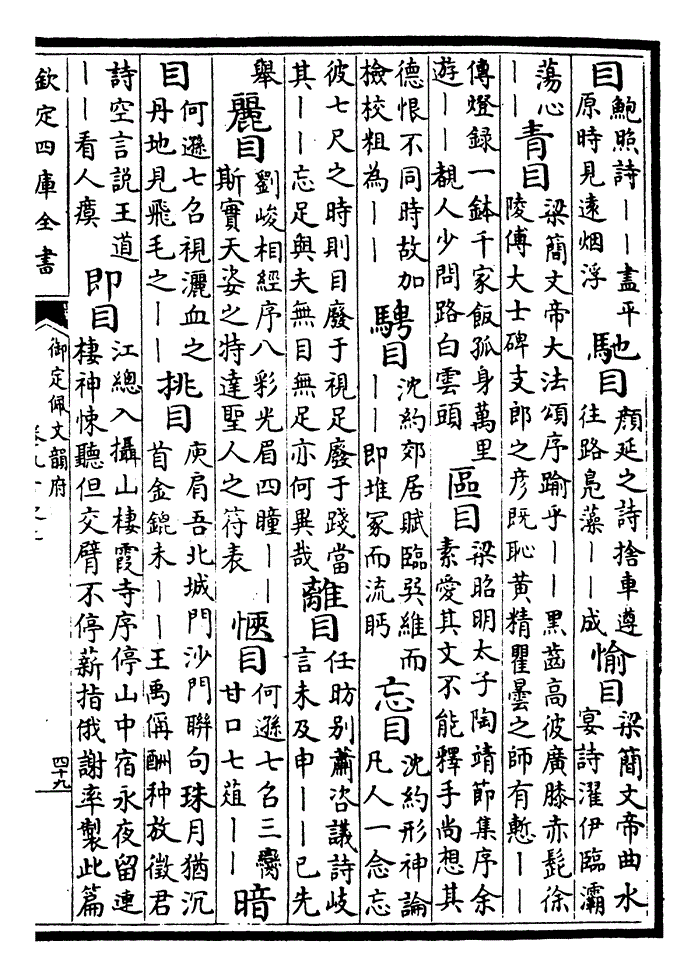 目
鮑照詩——盡平
原時見遠烟浮
馳目
顔延之詩捨車遵
往路鳧藻——成
愉目
梁簡文帝曲水
宴詩濯伊臨灞
蕩心
——
青目
梁簡文帝大法頌序踰乎——黑齒高彼廣膝赤髭徐
陵傅大士碑支郎之彦既恥黄精瞿曇之師有慙——
傳燈録一鉢千家飯孤身萬里
遊——覩人少問路白雲頭
區目
梁昭明太子陶靖節集序余
素愛其文不能釋手尚想其
德恨不同時故加
檢校粗為——
騁目
沈約郊居賦臨巽維而
——即堆冢而流眄
忘目
沈約形神論
凡人一念忘
彼七尺之時則目廢于視足廢于踐當
其——忘足與夫無目無足亦何異哉
離目
任昉别蕭咨議詩岐
言未及申——已先
舉
麗目
劉峻相經序八彩光眉四瞳——
斯實天姿之特達聖人之符表
愜目
何遜七召三臡
甘口七葅——
暗
目
何遜七召視灑血之
丹地見飛毛之——
挑目
庾肩吾北城門沙門聯句珠月猶沉
首金錍未——王禹偁酬种放徵君
詩空言説王道
——看人瘼
即目
江總入攝山棲霞寺序停山中宿永夜留連
棲神悚聽但交臂不停薪指俄謝率製此篇
欽定四庫全書
御定佩文韻府
四十九